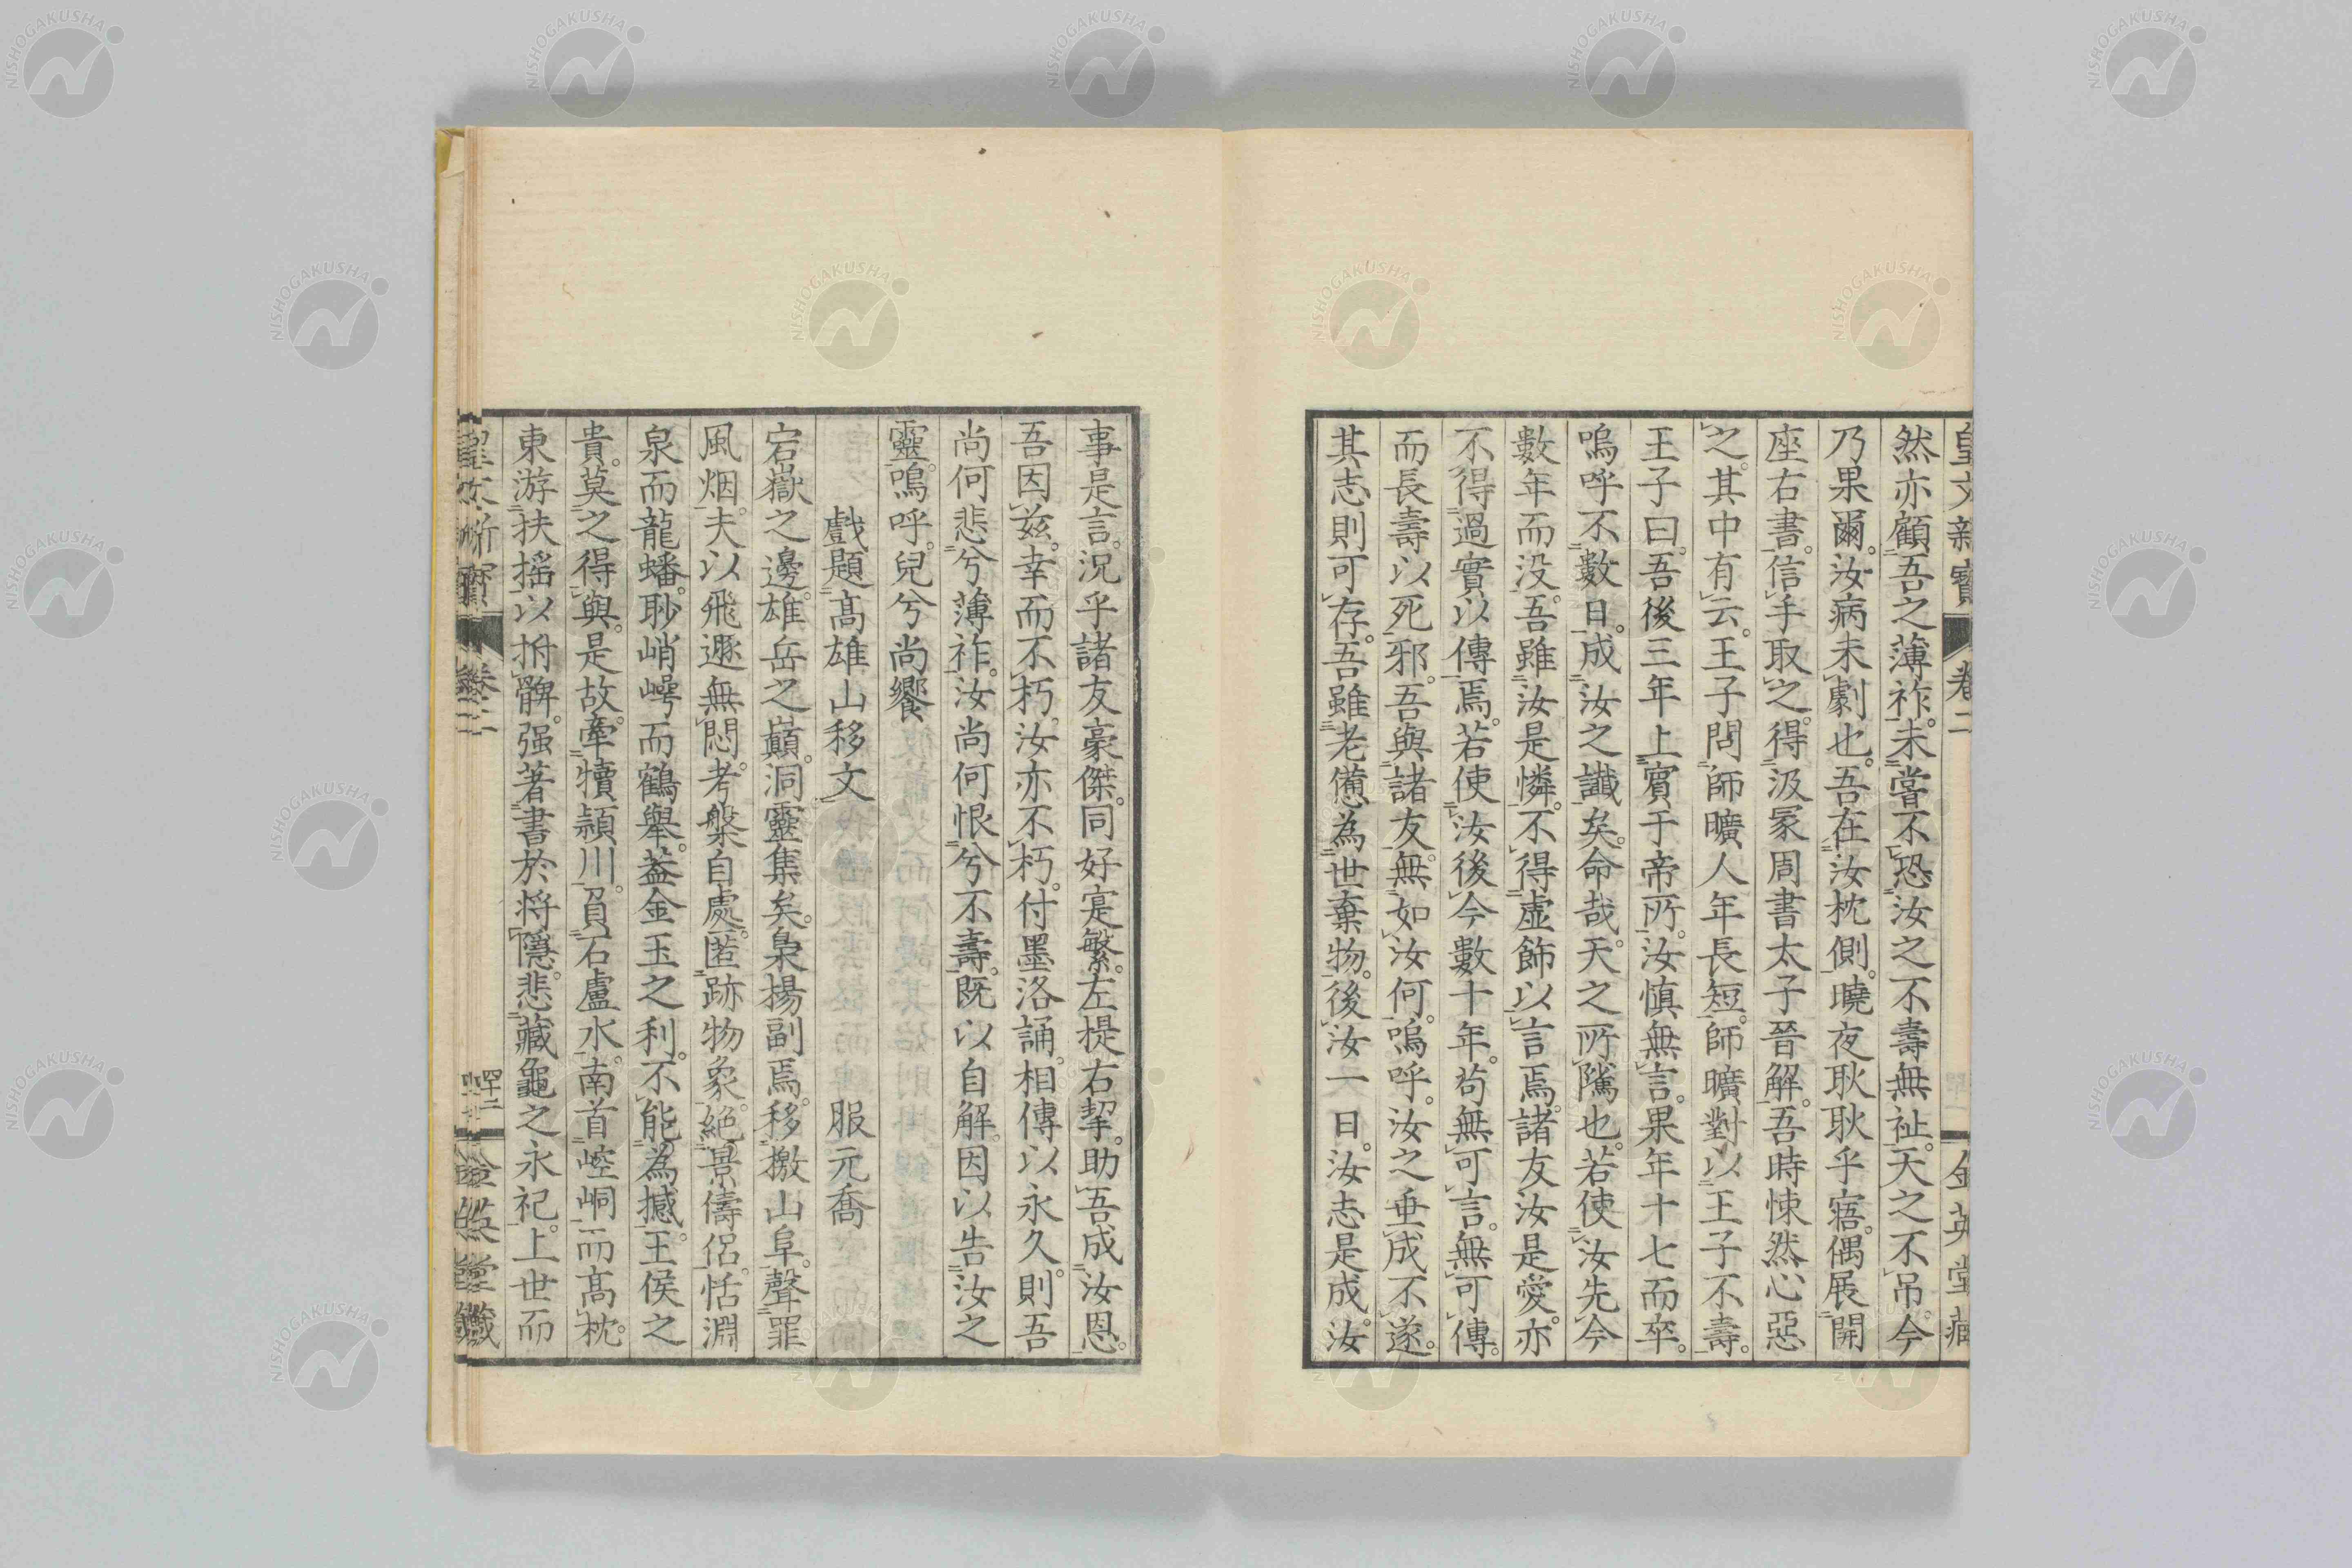 然亦顧吾之薄祚。未嘗不恐汝之不壽無祉。天之不弔。今
乃果爾。汝病未劇也。吾在汝枕側。曉夜耿耿乎寤。偶展開
座右書。信手取之。得汲冢周書太子晉解。吾時悚然心惡
之。其中有云。王子問師曠人年長短。師曠對以王子不壽。
王子曰。吾後三年上賓于帝所。汝慎無言。果年十七而卒。
嗚呼不數日。成汝之讖矣。命哉。天之所隲也。若使汝先今
數年而没。吾雖汝是憐。不得虛飾以言焉。諸友汝是愛。亦
不得過實以傳焉。若使汝後今數十年。苟無可言。無可傳。
而長壽以死邪。吾與諸友。無如汝何。嗚呼。汝之垂成不遂。
其志則可存。吾雖老憊為世棄物。後汝一日。汝志是成。汝
事是言。況乎諸友豪傑。同好寔繁。左提右挈。助吾成汝恩。
吾因茲。幸而不朽。汝亦不朽。付墨洛誦。相傳以永久。則吾
尚何悲兮薄祚。汝尚何恨兮不壽。既以自解。因以告汝之
靈。嗚呼。兒兮尚饗
戲題高雄山移文 服元喬
宕嶽之邊。雄岳之巔。洞靈集矣。梟揚副焉。移檄山阜。聲罪
風烟。夫以飛遯無悶。考槃自處。匿跡物象。絕景儔侶。恬淵
泉而龍蟠。眇峭崿而鶴舉。蓋金玉之利。不能為撼。王侯之
貴。莫之得與。是故牽犢潁川。負石盧水。南首崆峒而高枕。
東游扶搖以拊髀。强著書於將隱。悲藏龜之永祀。上世而
皇文新寶 卷二 金英堂藏